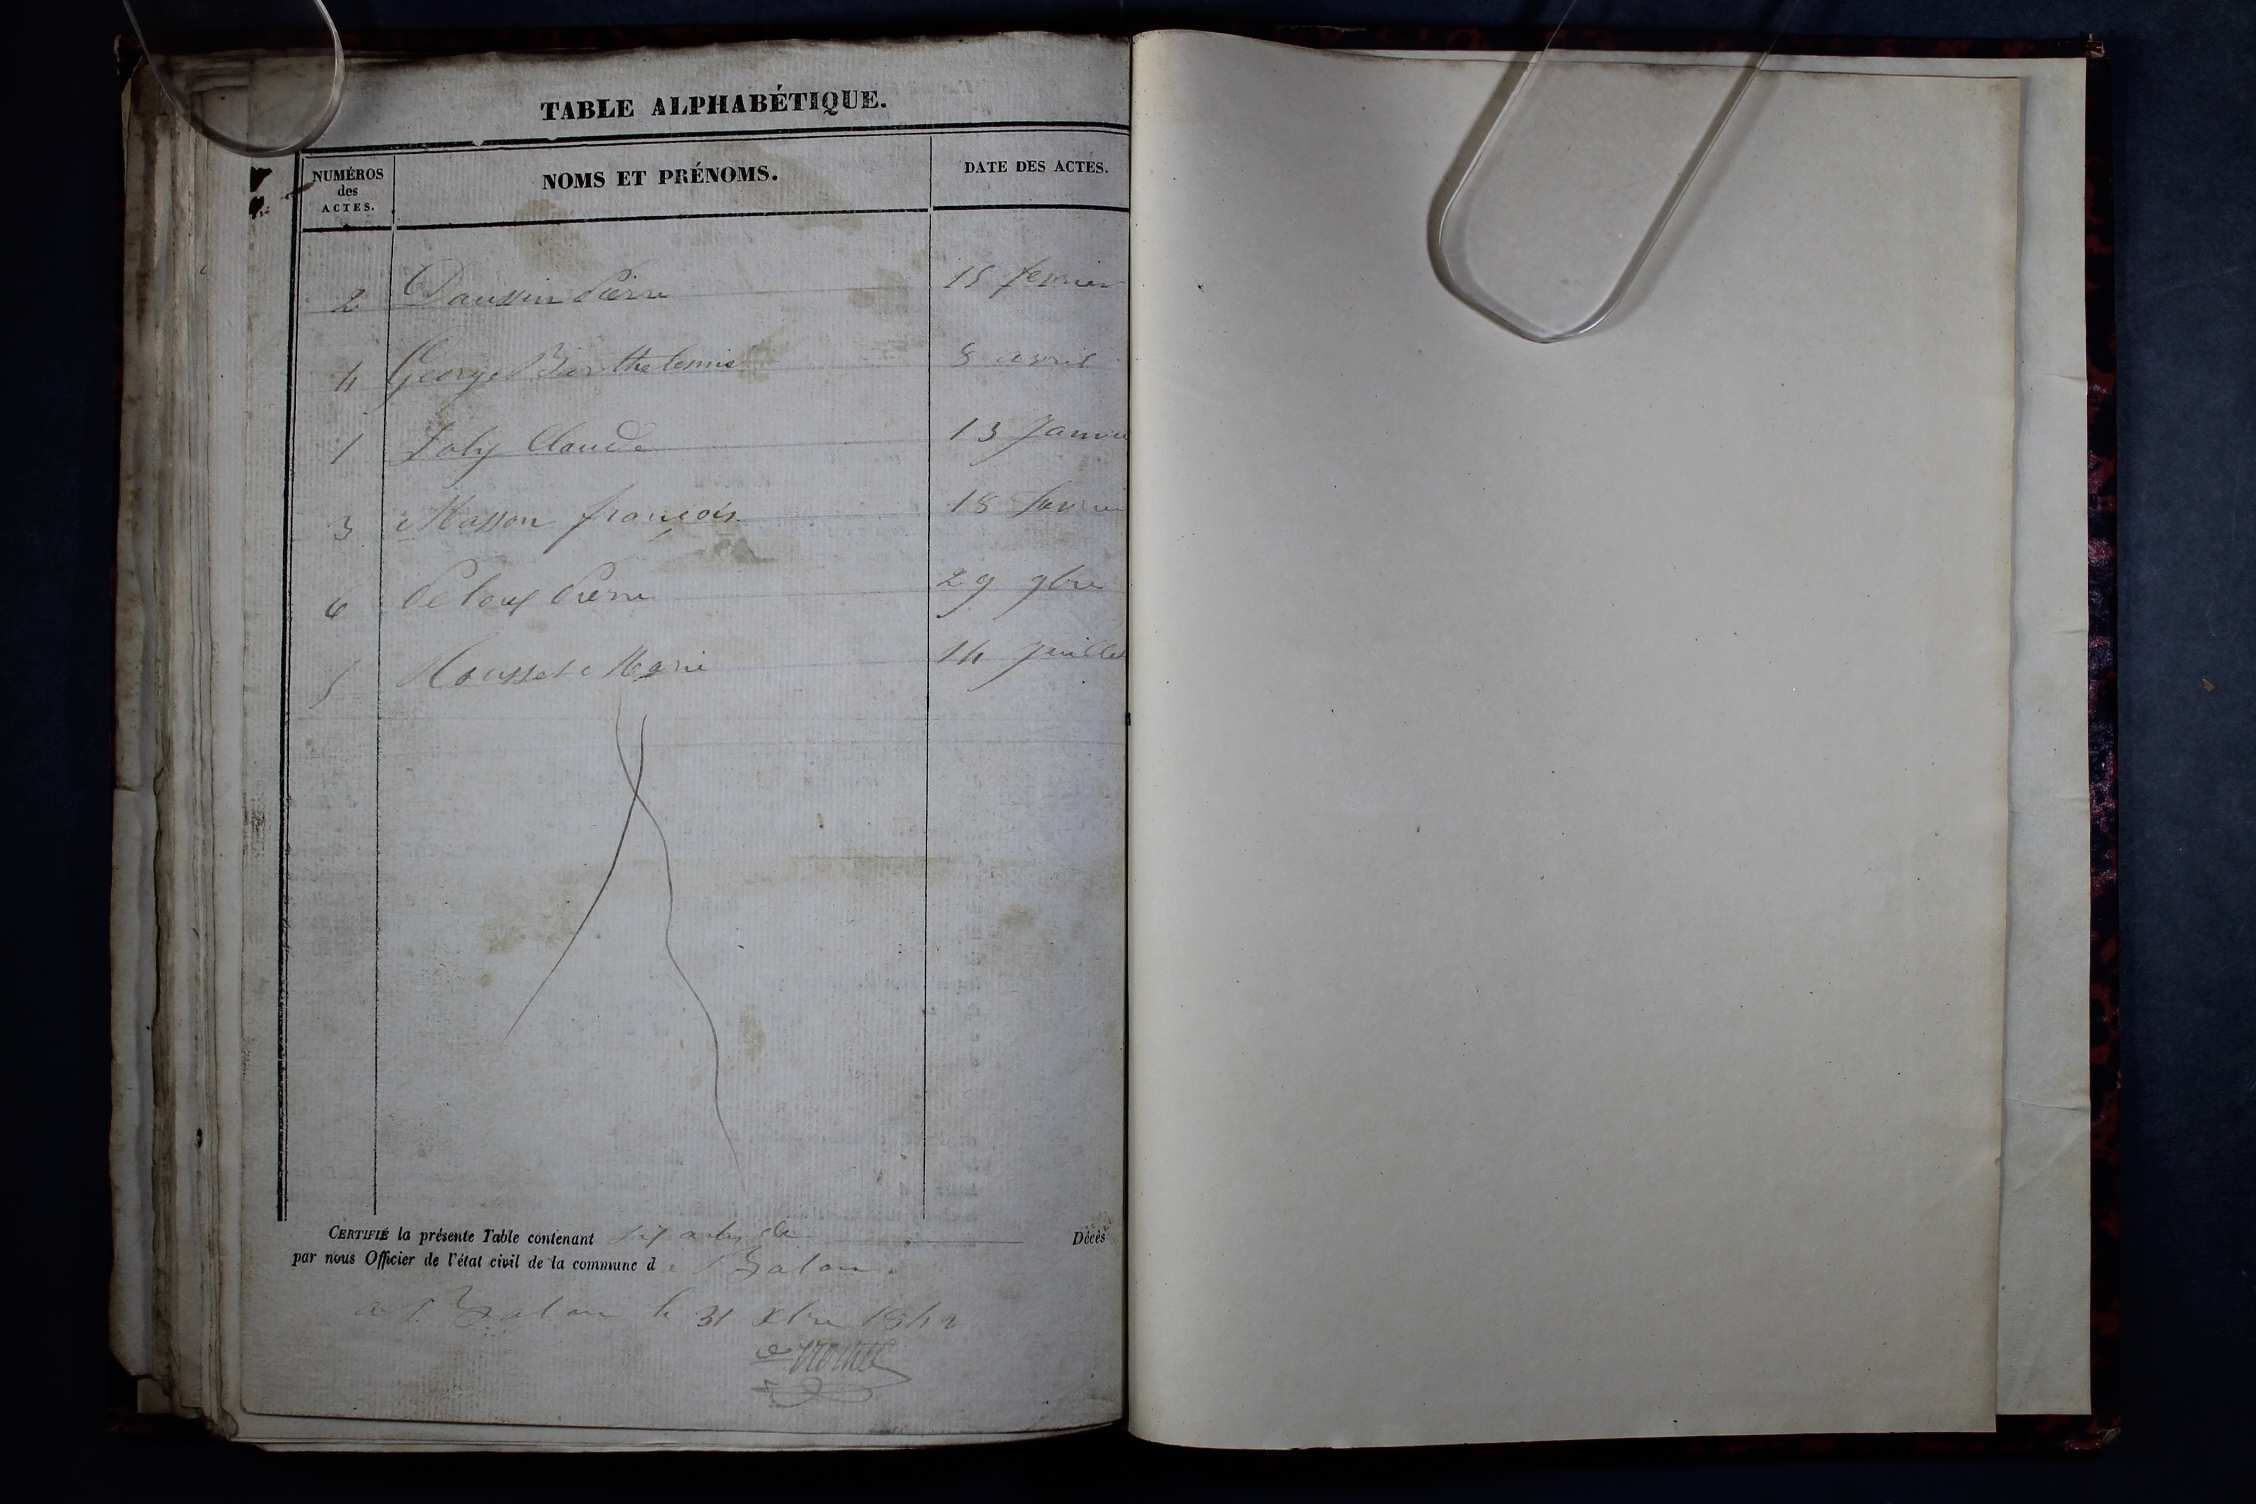 TABLE ALPHABÉTIQUE.
NUMÉROS des ACTES. NOMS ET PRÉNOMS. DATE DES ACTES.
2 Daussin Pierre 15 fevrier
4 George Berthelemie 8 avril
1 Joly Claude 13 Janvier
3 Masson françois 18 fevrier
6 Peloux Pierre 29 9bre
5 Rousset Marie 14 Juillet
CERTIFIÉ la présente Table contenant six actes de Décès
par nous Officier de l'état civil de la commune d
le 31 Xbre 1842